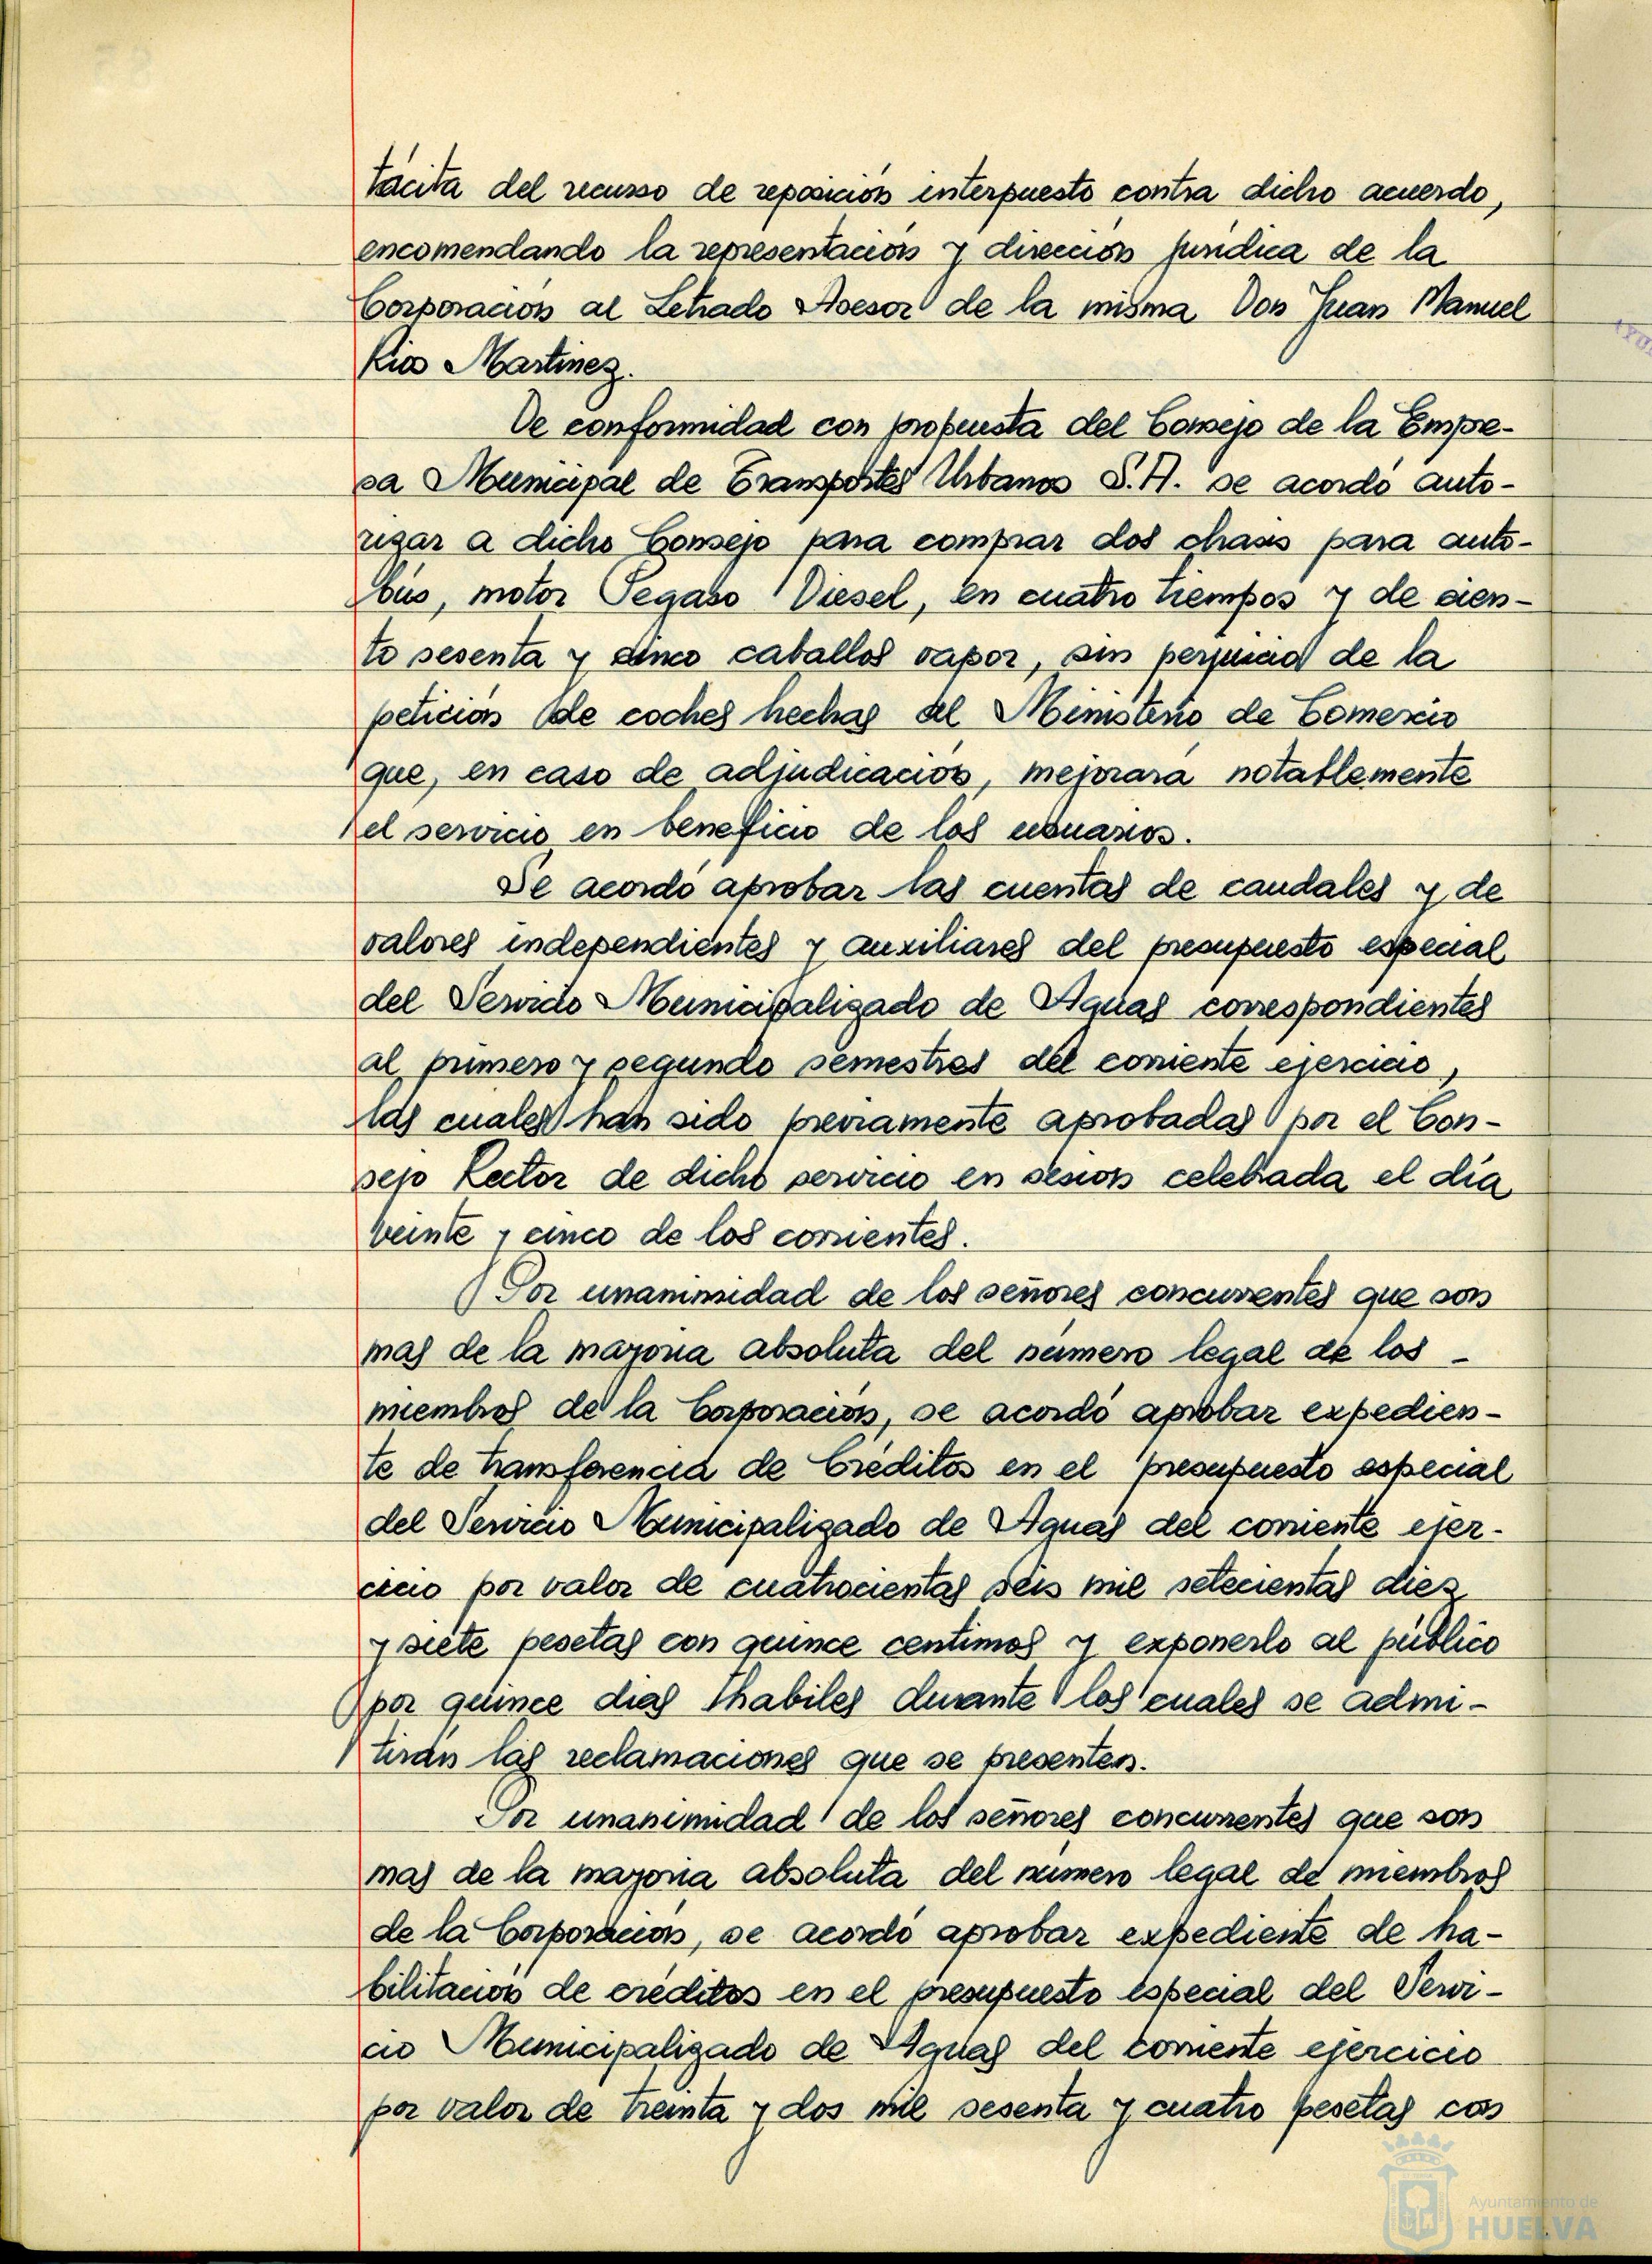 tácita del recurso de reposición interpuesto contra dicho acuerdo,
encomendando la representación y dirección jurídica de la
Corporación al Letrado Asesor de la misma Don Juan Manuel
Rios Martinez.
De conformidad con propuesta del Consejo de la Empre-
sa Municipal de Transportes Urbanos S.A. se acordó auto-
rizar a dicho Consejo para comprar dos chasis para auto-
bús, motor Pegaso Diesel, en cuatro tiempos y de cien-
to sesenta y cinco caballos vapor, sin perjuicio de la
petición de coches hechas al Ministerio de Comercio
que, en caso de adjudicación, mejorará notablemente
el servicio en beneficio de los usuarios.
Se acordó aprobar las cuentas de caudales y de
valores independientes y auxiliares del presupuesto especial
del Servicio Municipalizado de Aguas correspondientes
al primero y segundo semestres del corriente ejercicio,
las cuales han sido previamente aprobadas por el Con-
sejo Rector de dicho servicio en sesión celebrada el día
veinte y cinco de los corrientes.
Por unanimidad de los señores concurrentes que son
mas de la mayoria absoluta del número legal de los -
miembros de la Corporación, se acordó aprobar expedien-
te de transferencia de Créditos en el presupuesto especial
del Servicio Municipalizado de Aguas del corriente ejer-
cicio por valor de cuatrocientas seis mil setecientas diez
y siete pesetas con quince centimos y exponerlo al público
por quince dias habiles durante los cuales se admi-
tirán las reclamaciones que se presenten.
Por unanimidad de los señores concurrentes que son
mas de la mayoria absoluta del número legal de miembros
de la Corporación, se acordó aprobar expediente de ha-
bilitación de créditos en el presupuesto especial del Servi-
cio Municipalizado de Aguas del corriente ejercicio
por valor de treinta y dos mil sesenta y cuatro pesetas con
Ayuntamiento de
HUELVA